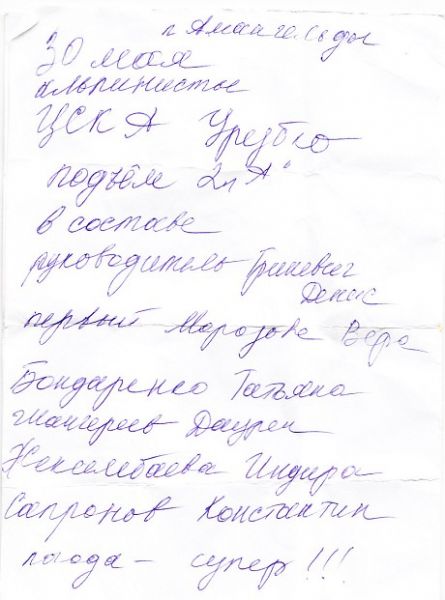 п Амангельды
30 мая
альпинисты
ЦСКА Урубко
подъём 2 "А"
в составе
руководитель Гриневич
Денис
первый Морозова Вера
Бондаренко Татьяна
Жангереев Даурен
Жексембаева Индира
Сапронов Константин
погода - супер!!!